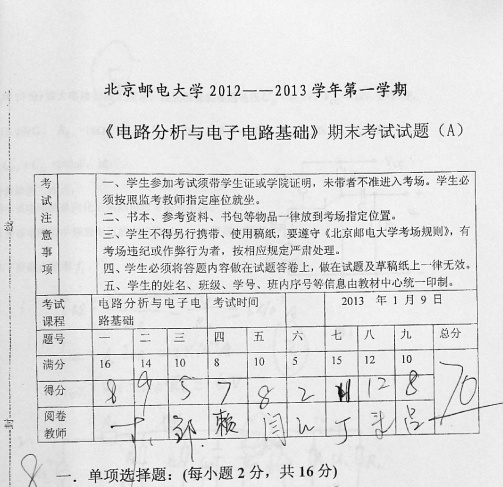 北京邮电大学 2012——2013 学年第一学期
《电路分析与电子电路基础》期末考试试题（A）
考试注意事项
一、学生参加考试须带学生证或学院证明，未带者不准进入考场。学生必
须按照监考教师指定座位就坐。
二、书本、参考资料、书包等物品一律放到考场指定位置。
三、学生不得另行携带、使用稿纸，要遵守《北京邮电大学考场规则》，有
考场违纪或作弊行为者，按相应规定严肃处理。
四、学生必须将答题内容做在试题答卷上，做在试题及草稿纸上一律无效。
五、学生的姓名、班级、学号、班内序号等信息由教材中心统一印制。
考试课程 电路分析与电子电路基础 考试时间 2013 年 1 月 9 日
题号 一 二 三 四 五 六 七 八 九 总分
满分 16 14 10 8 10 5 15 12 10
得分 8 9 5 7 8 2 11 12 8 70
阅卷教师 郭 赖 闫 丁 吕
8
一．单项选择题：(每小题 2 分，共 16 分)